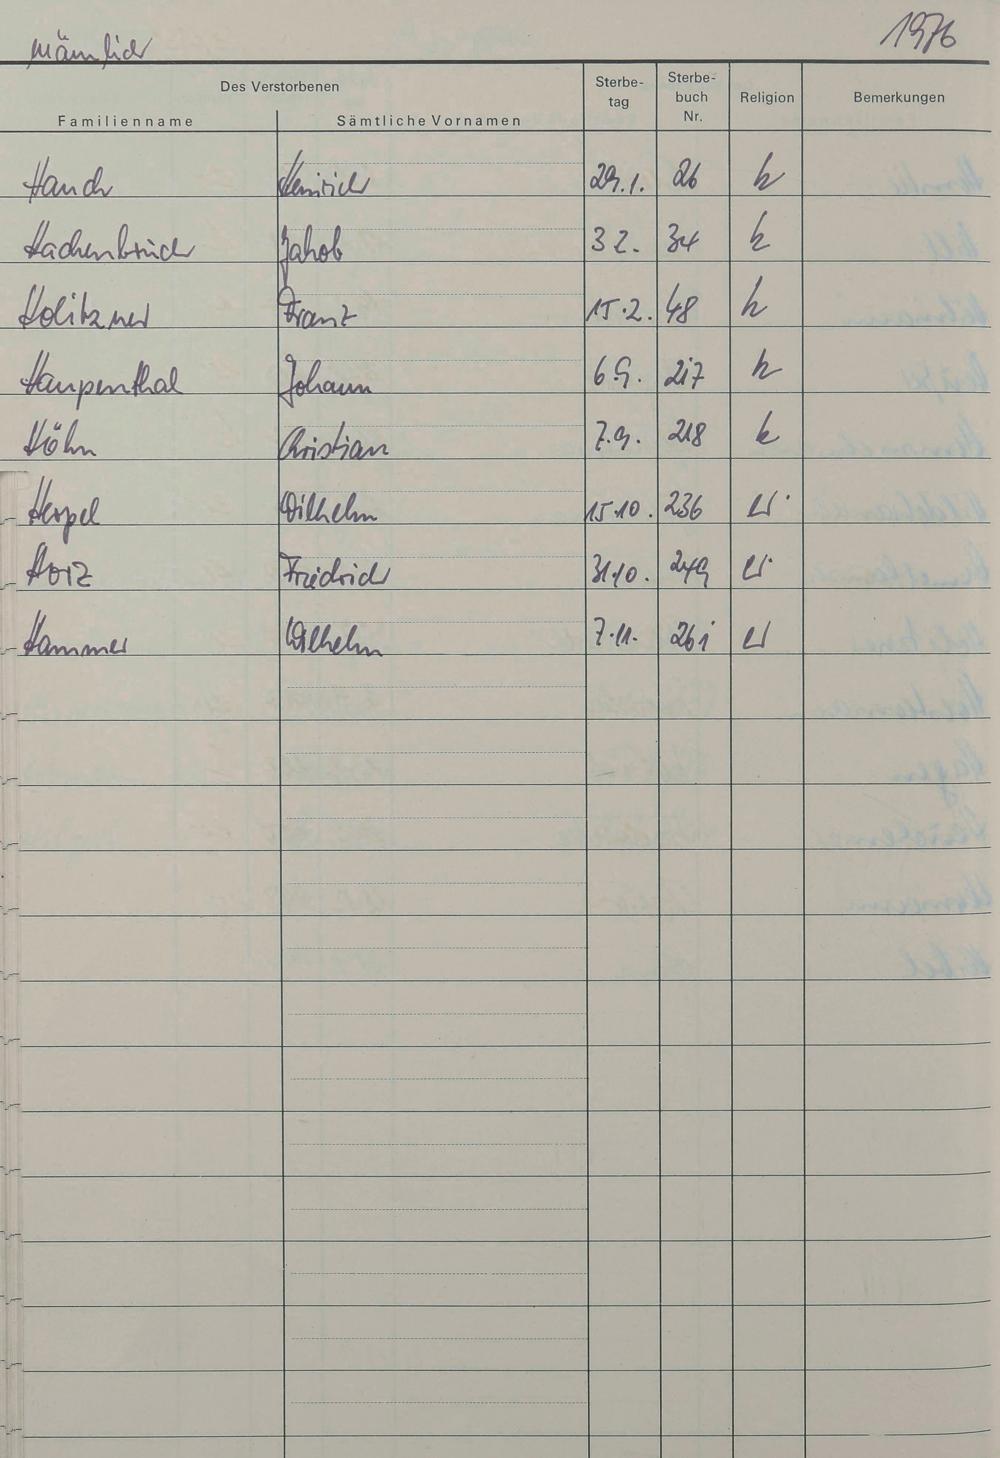 männlich 1976
Des Verstorbenen
Familienname Sämtliche Vornamen Sterbe-tag Sterbe-buch Nr. Religion Bemerkungen
Hauch Heinrich 29.1. 26 k
Hachenbruch Jakob 3 2. 34 k
Holitzner Franz 15.2. 48 k
Haupenthal Johann 6 9. 217 k
Höhn Christian 7.9. 218 k
Hespel Wilhelm 15.10. 236 ev.
Horz Friedrich 31.10. 249 ev.
Hammer Wilhelm 7.11. 261 ev